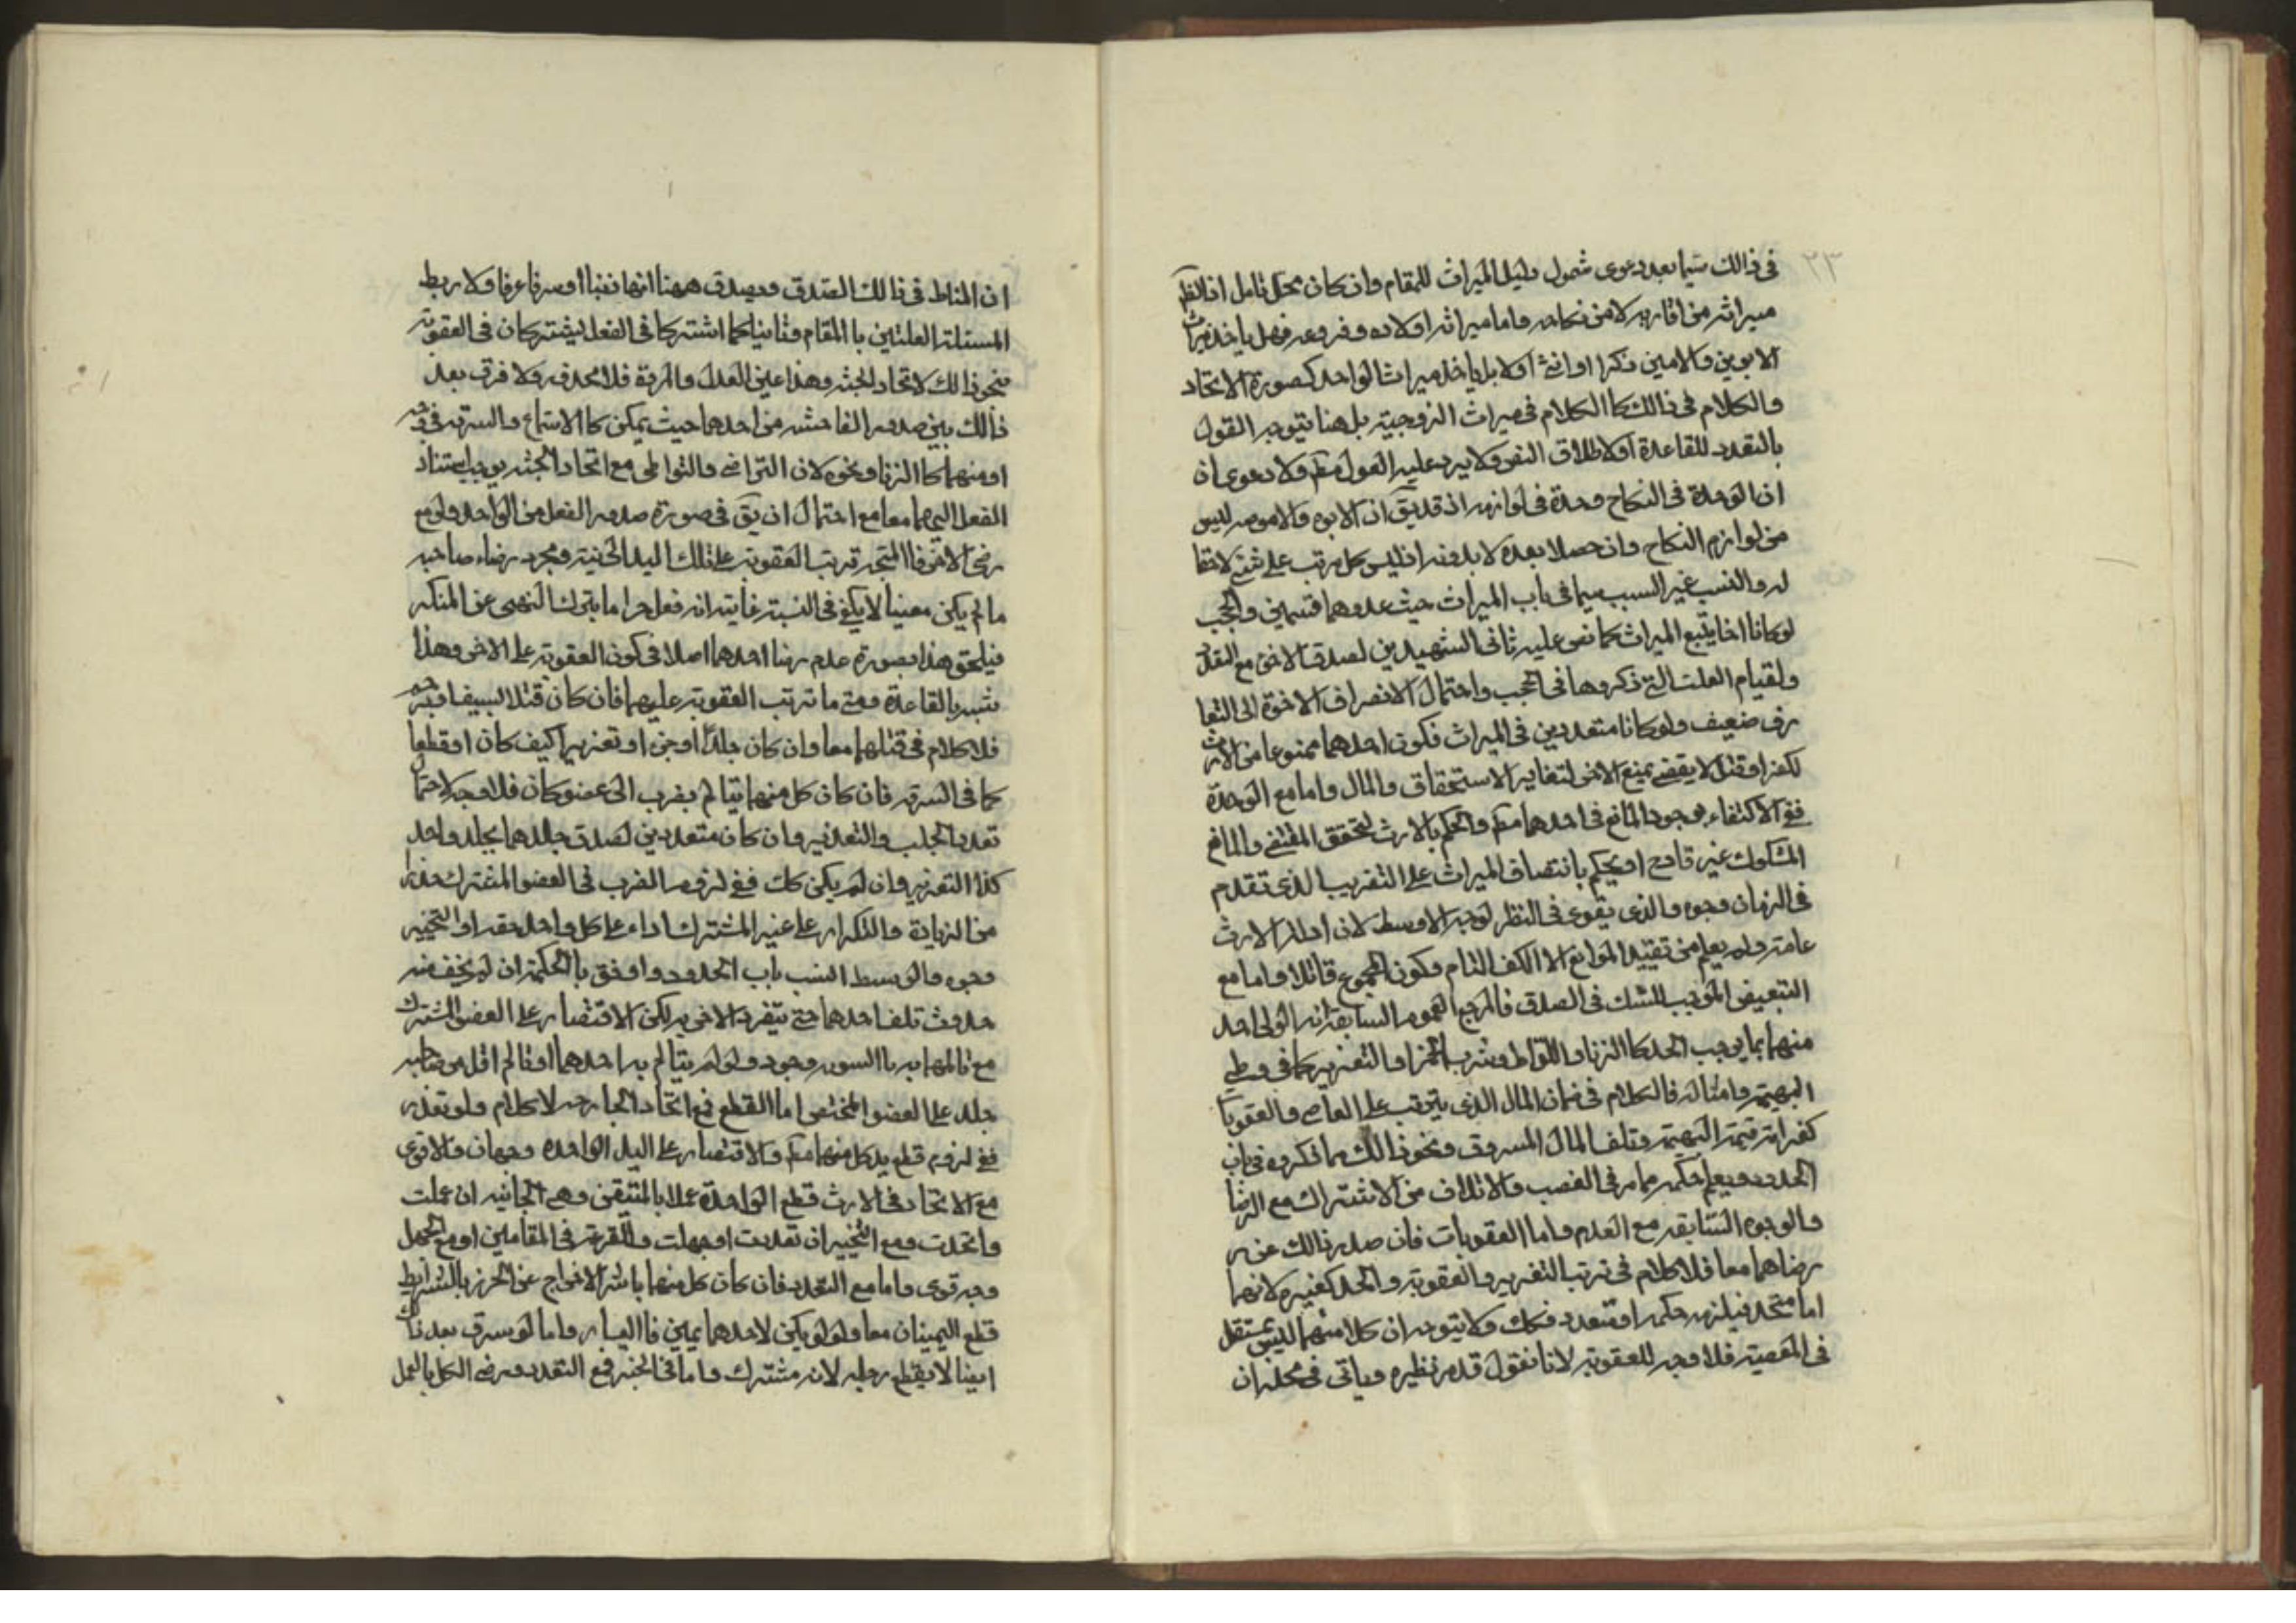 ٢٣
في ذالك سيما بعد دعوى شمول دليل الميراث للمقام وان كان محل تامل اذ الظ
ميراثه من اقاربه لا من نكاحه واما ميراثه اولاده وفروعه فهل ياخذ ميراث
الابوين والامين ذكرا او انثى اولا بل ياخذ ميراث الواحد كصورة الاتحاد
والكلام في ذالك كا الكلام في ميراث الزوجية بل هنا يتوجه القول
بالتعدد للقاعدة اولاطلاق النص ولا يرد عليه العول مط ولا دعوى ان
ان الوحدة في النكاح وحدة في لوازمه اذ قد يق ان الابوه والامومه ليس
من لوازم النكاح وان حصلا بعده لا بدونه اذ ليس كل مرتب على شئ لازما
له والنسب غير السبب سيما في باب الميراث حيث عدوهما قسمين والحجب
لو كانا اخا يتبع الميراث كما نص عليه ثاني الشهيدين لصدق الاخوة مع التعدد
ولقيام العلت التي ذكروها في الحجب واحتمال الانصراف الاخوة الى المتعا
رف ضعيف ولو كانا متعددين في الميراث فكون احدهما ممنوعا من الارث
لكفر او قتل لا يقضى بمنع الاخر لتغاير الاستحقاق والمال واما مع الوحدة
ففي الاكتفاء بوجود المانع في احدهما مط والحكم بالارث لتحقق المقتضى والمانع
المشكوك غير قادح او يحكم بانتصاف الميراث على التقريب الذى تقدم
في الزمان وجوه والذى يقوى في النظر لوجه الاوسط لان ادلة الارث
عامة ولم يعلم من تقييد الموانع الا الكف التام وكون المجموع قاتلا واما مع
التبعيض الموجب للشك في الصدق فالمرجع العموم السابقة انه الولى احد
منهما بما يوجب الحد كا الزنا واللواط وشرب الخمر او التعزير كما في وطى
البهيمة وامثاله فالكلام في ضمان المال الذى يترتب على العاصى والعقوبات
كغرامة قيمة البهيمة وتلف المال المسروق ونحو ذالك مما ذكروه في باب
الحدود ويعلم حكمه مما مر في الغصب والاتلاف من الاشتراك مع الرضا
والوجوه السابقه مع العدم واما العقوبات فان صدر ذالك عن
رضاهما معا فلا كلام في ترتب التعزير والعقوبة والحد كغيره لانهما
اما متحد فيلزمه حكمه او متعدد فكك ولا يتوجه ان كلا منهما ليس بمستقل
في المعصية فلا وجه للعقوبة لانا نقول قد مر نظيره وياتى في محله ان
ان المناط في ذالك الصدق ويصدق ههنا انهما زنيا او سرقا عرفا ولا ربط
المسئلة العلتين با المقام وثانيا كما اشتركا في الفعل يشتركان في العقوبة
بنحو ذالك لاتحاد الجثه وهذا عين العدل والمرية فلا محذور ولا فرق بعد
ذالك بين صدور الفاحشه من احدهما حيث يمكن كا الاستماع والسرقه في وجه
او منهما كا الزنا ونحوه لان التراضى والتواطى مع اتحاد الجثه يوجب استناد
الفعل اليهما معا مع احتمال ان يق في صورة صدور الفعل من الواحد ولو مع
رضى الاخر فا المتجه ترتب العقوبة على تلك اليد الجانية ومجرد رضاء صاحبه
ما لم يكن معينا لا يكفى في النسبة غايته انه فعل حراما بترك النهى عن المنكر
فيلحق هذا بصورة عدم رضا احدهما اصلا في كون العقوبة على الاخر وهذا
شبه بالقاعدة ومتى ما ترتب العقوبة عليهما فان كان قتلا لسيف او رجم
فلا كلام في قتلهما معا وان كان جلدا او جز او تعزيرا كيف كان او قطعا
كما في السرقه فان كان كل منهما يتالم بضرب الى عضو كان فلا وجه لاحتمال
تعدد الجلد والتعذير وان كان متعددين لصدق جلدهما بجلد واحد
كذا التعزير وان لم يكن كك ففي لزوم الضرب في العضو المشترك حذرا
من الزيادة والتكرار على غير المشترك اداء على كل واحد حقه او التخيير
وجوه والوسط انسب باب الحدود واوفق بالحكمة ان لم يخف منه
حدوث تلف احدهما حتى يتفرد الاخر به لكن الاقتصار على العضو المشترك
مع تالمهما به با السويه وجود ولو لم يتالم به احدهما او تالم اقل من صاحبه
جلد على العضو المختص اما القطع فمع اتحاد الجارحه لا كلام ولو تعدد
ففي لزوم قطع يد كل منهما مط والاقتصار على اليد الواحده وجهان والاقوى
مع الاتحاد في الارث قطع الواحدة عملا بالمتيقن وهى الجانيه ان علمت
واتحدت ومع التخيير ان تعددت او جهلت والقرعة في المقامين او مع الجهل
وجه قوى واما مع التعدد فان كان كل منهما باشر الاخراج عن الحرز بالشرايط
قطع اليمينان معا ولو لو يكن لاحدهما يمين فا اليسار واما لو سرق بعد ذلك
ايضا لا يقطع رجليه لانه مشترك واما في الجنه فمع التعدد ورضى الكل بالعمل